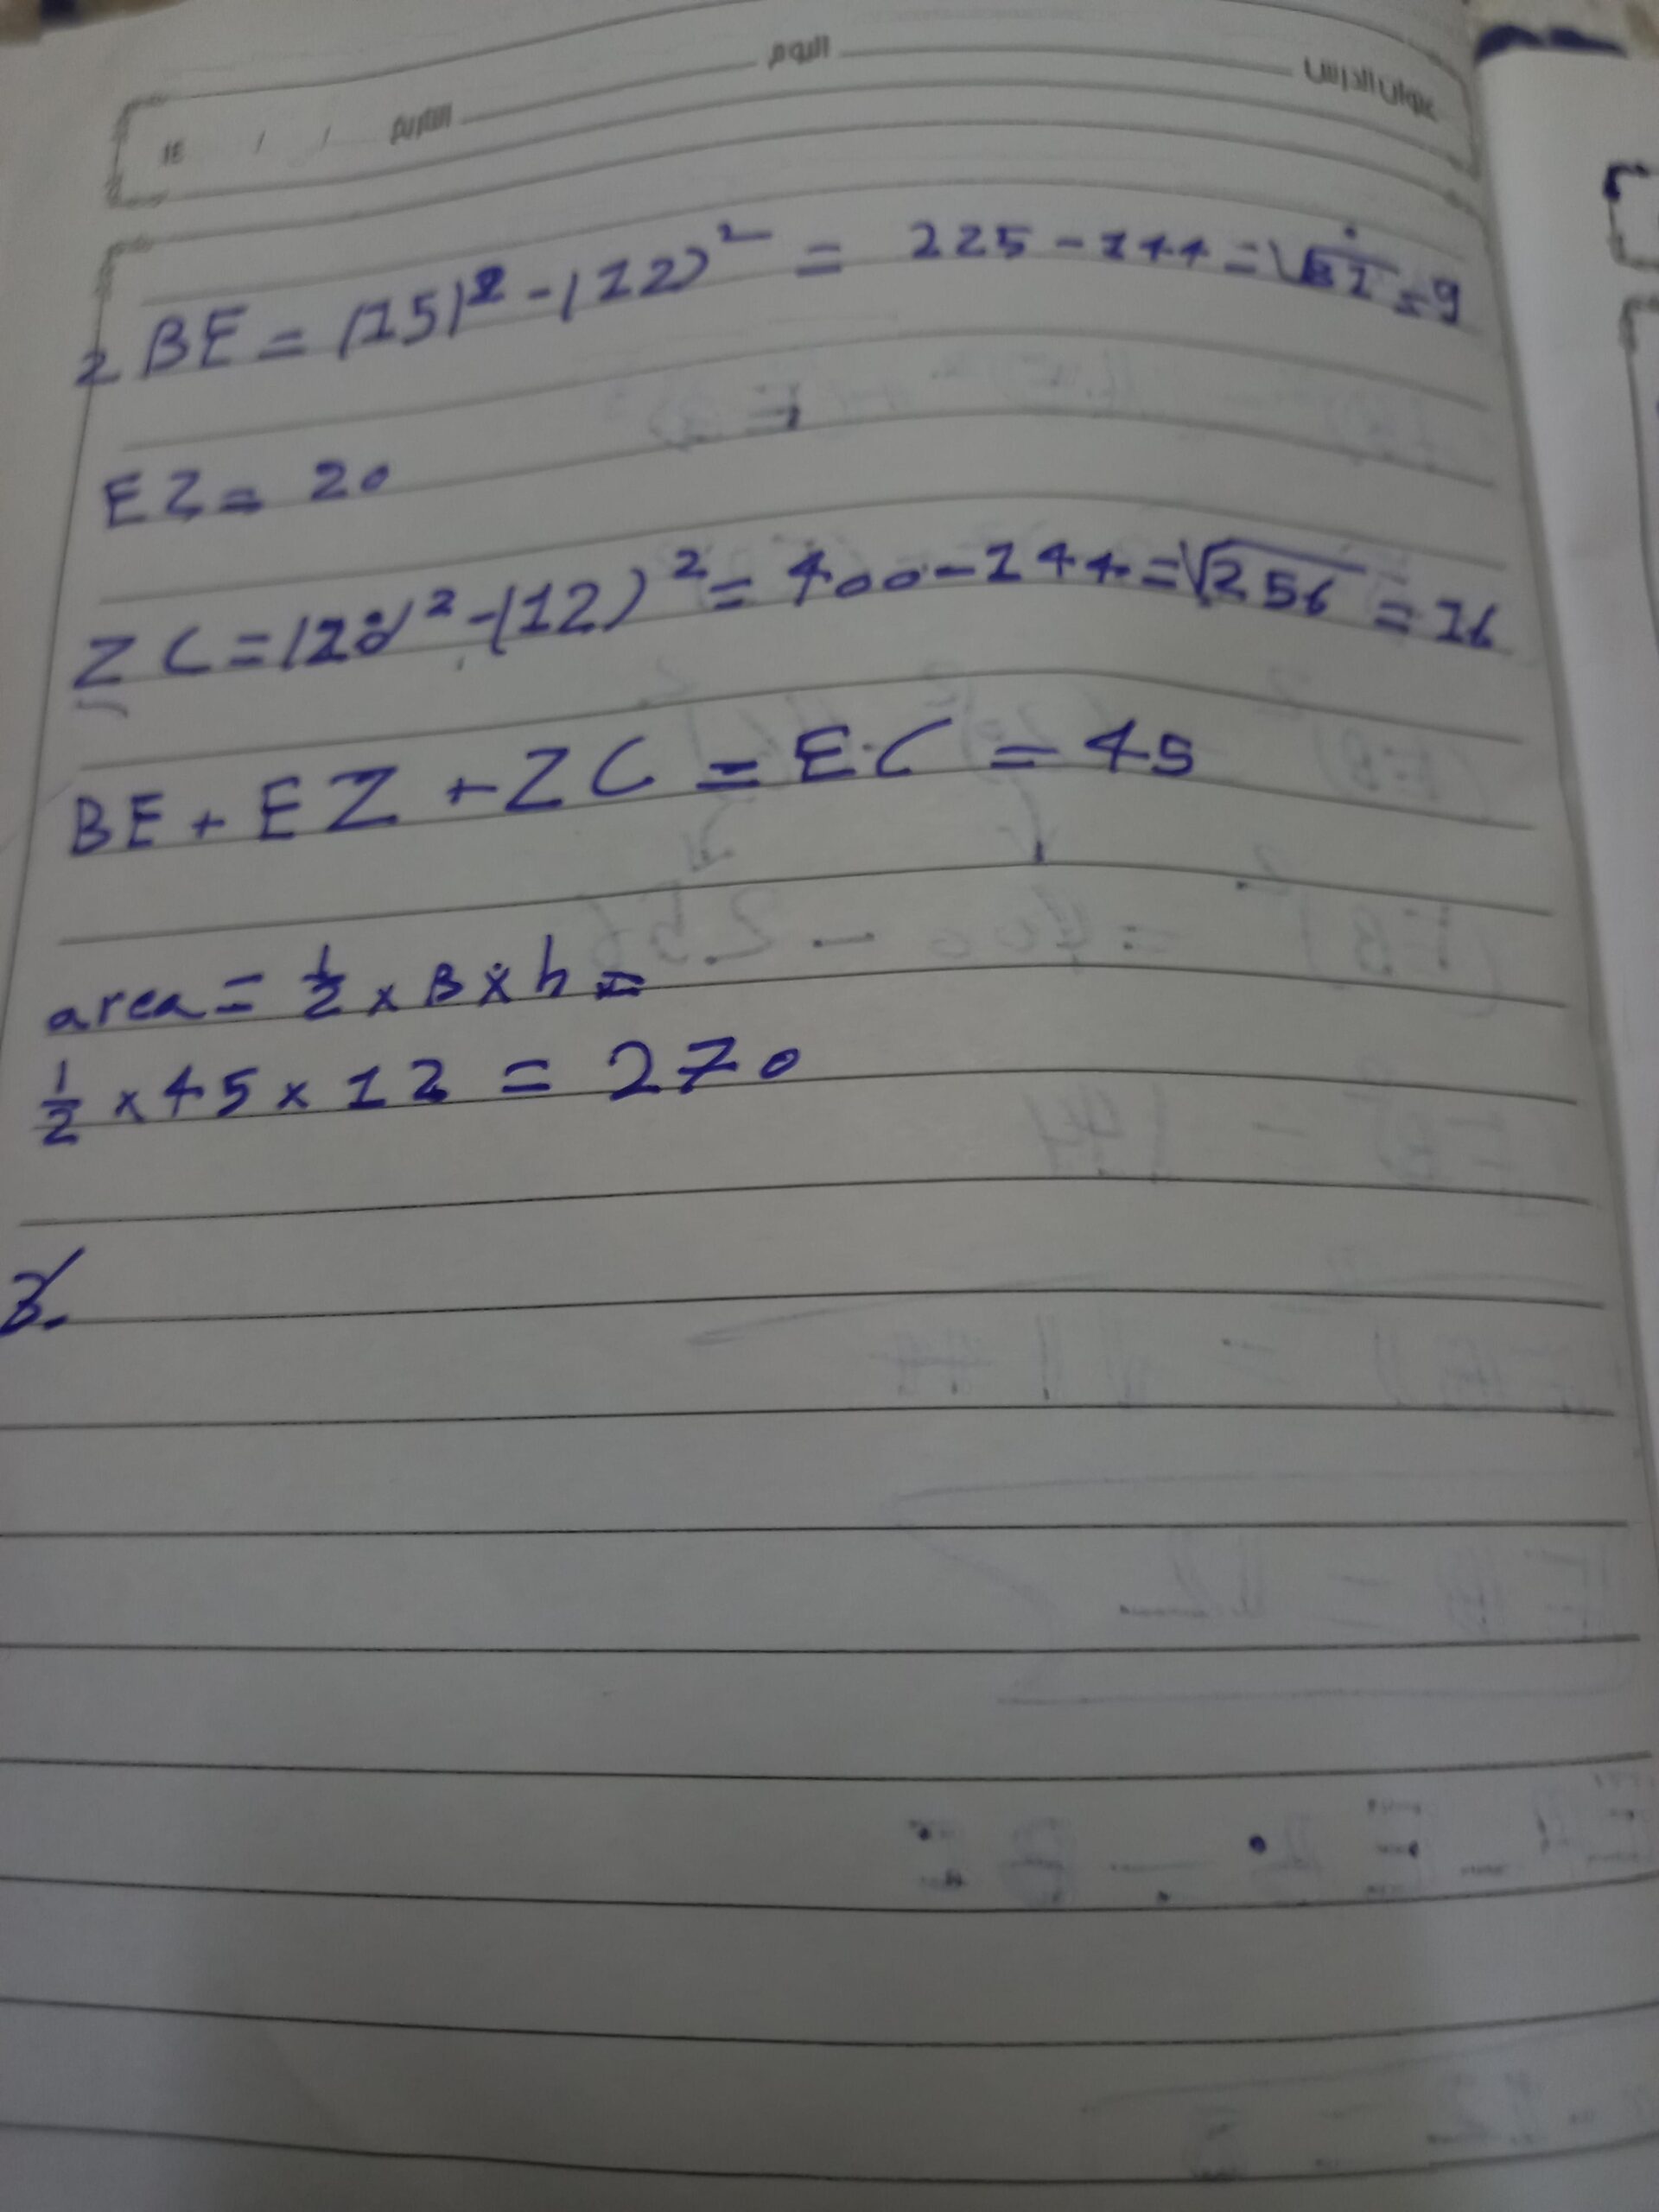 عنوان الدرس اليوم
التاريخ / / ١٤
2 BE = (15)² - (12)² = 225 - 144 = √81 = 9
EZ = 20
ZC = (20)² - (12)² = 400 - 144 = √256 = 16
BE + EZ + ZC = EC = 45
area = 1/2 × B × h =
1/2 × 45 × 12 = 270